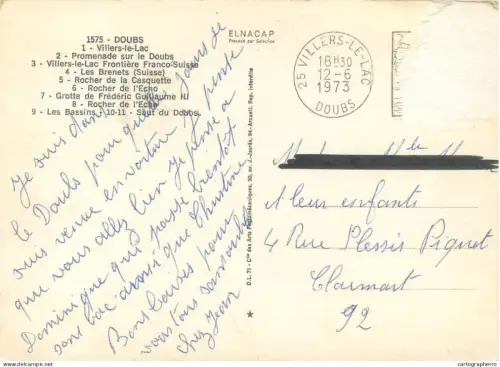 1575 - DOUBS
1 - Villers-le-Lac
2 - Promenade sur le Doubs
3 - Villers-le-Lac Frontière Franco-Suisse
4 - Les Brenets (Suisse)
5 - Rocher de la Casquette
6 - Rocher de l'Echo
7 - Grotte de Frédéric Guillaume III
8 - Rocher de l'Echo
9 - Les Bassins 10-11 - Saut du Doubs
ELNACAP
25 VILLERS-LE-LAC
18H30
12-6
1973
DOUBS
Je suis dans
le Doubs pour quelques jours je
suis venue en voiture. Je pense
que vous allez bien je pense a
Dominique qui passe bientôt
son bac aussi que Christine
Bons baisers pour
vous tous
chez Jean
A leurs enfants
4 Rue Plessis Piquet
Clamart
92
D.L. 71 - Cie des Arts Photomécaniques, 30, av. J.-Jaurès, 94-Arcueil. Rep. Interdite
cartographerro